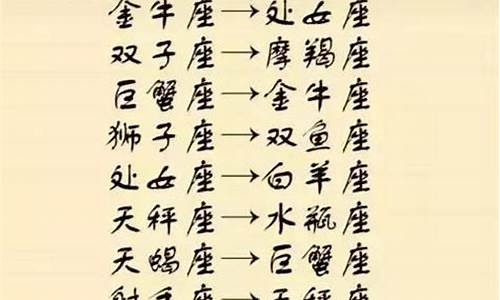 金牛座→处女座
双子座→摩羯座
巨蟹座→金牛座
狮子座→双鱼座
处女座→白羊座
天秤座→水瓶座
天蝎座→巨蟹座
射手座→天秤座